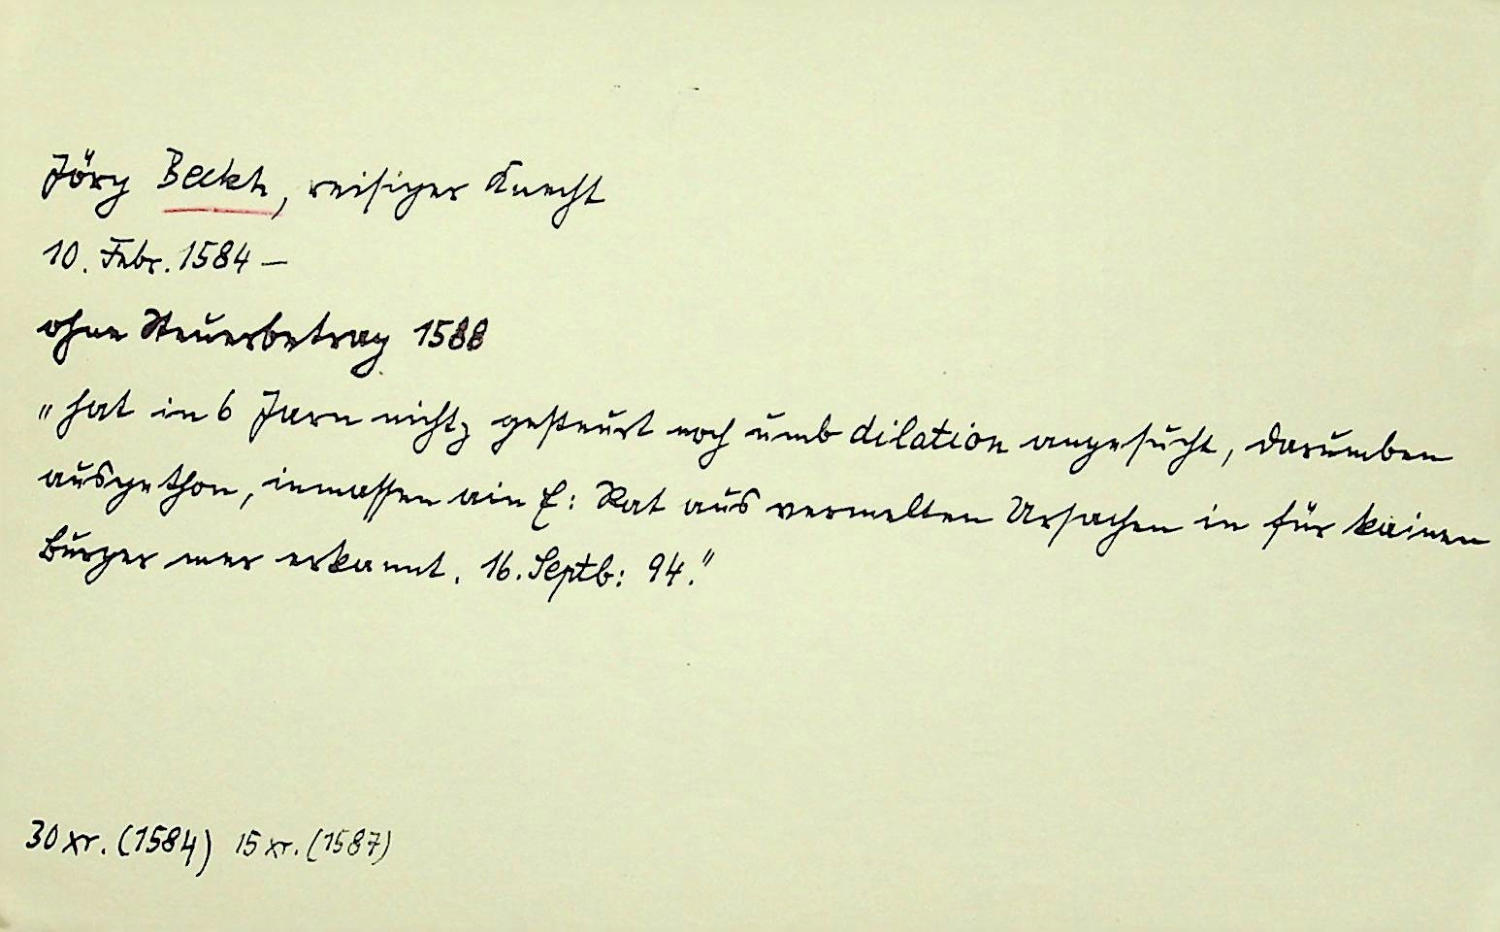 Jörg Beckh, reisiger Knecht
10. Febr. 1584 –
ohne Steuerbetrag 1588
"hat in 6 Jarn nichtz gesteurt noch umb dilation angesucht, darumben
ausgethon, inmassen ain E: Rat aus vermelten Ursachen in für kainen
Burger mer erkannt. 16. Septb: 94."
30 xr. (1584) 15 xr. (1587)